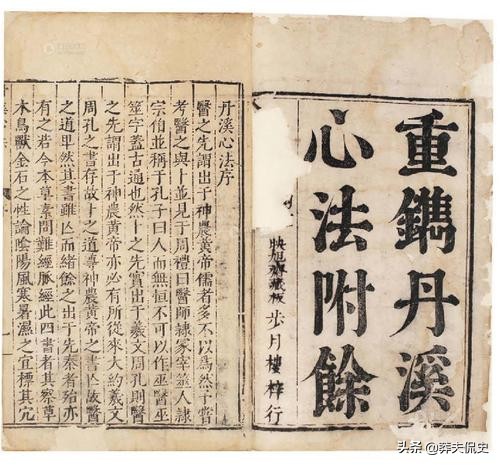 重鐫丹溪
心法附餘
映旭齋藏板
步月樓梓行
丹溪心法序
醫之先謂出于神農黃帝儒者多不以爲然予嘗
考醫之與卜並見于周禮曰醫師隸冢宰筮人隸
宗伯並稱于孔子曰人而無恒不可以作巫醫巫
筮字蓋古通也然卜之先實出于羲文周孔則醫
之先謂出于神農黃帝亦必有所從來大約羲文
周孔之書存故卜之道尊神農黃帝之書亾故醫
之道卑然其書雖亾而緒餘之出于先秦者殆亦
有之若今本草素問難經脈經此四書者其察草
木鳥獸金石之性論陰陽風寒暑濕之宜標其穴
头条 @葬夫侃史